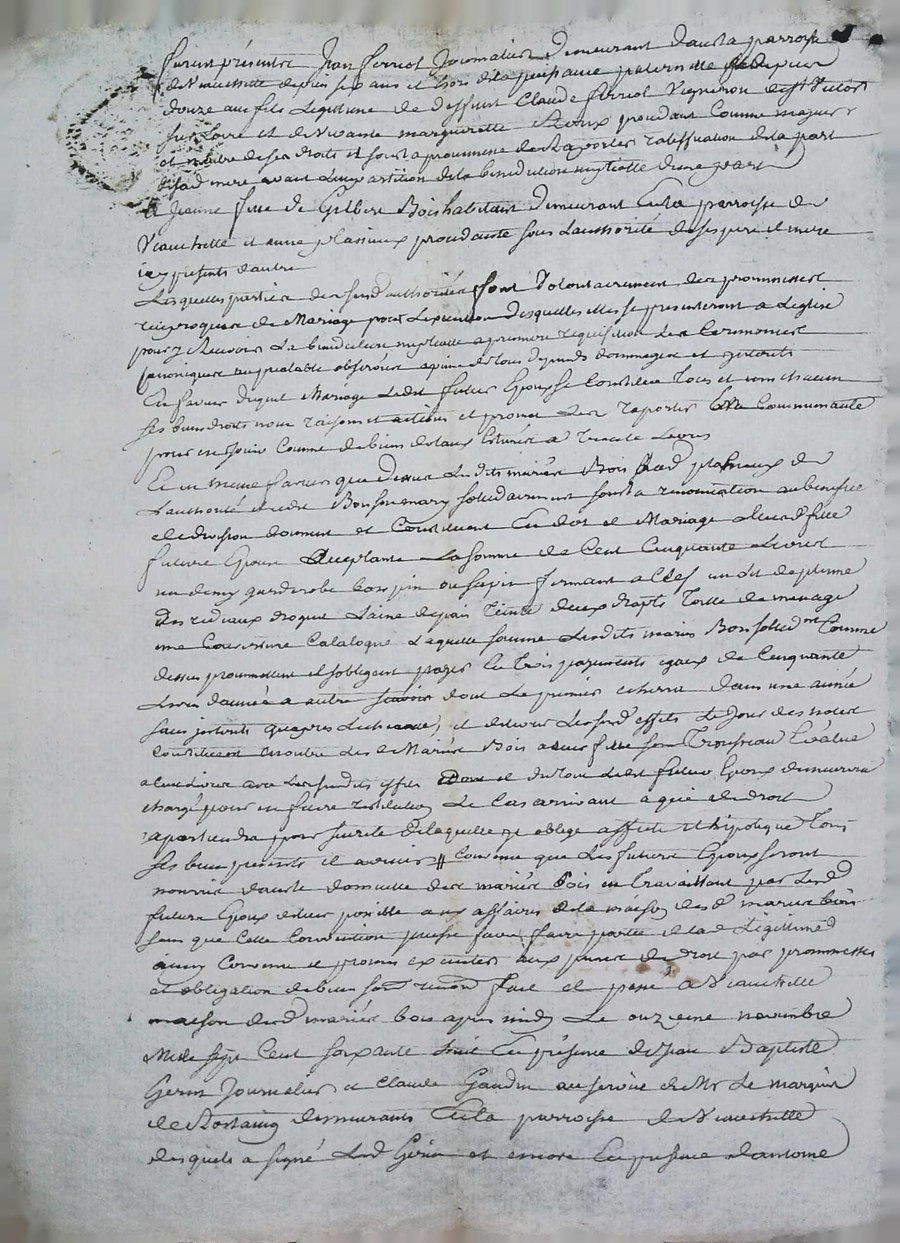 furent présents Jean ferriol Journalier demeurant dans la parroisse
de Veauchette depuis six ans et hors de la puissance paternelle depuis
douze ans fils Legitime de deffunt Claude ferriol Vigneron de St Victor
sur Loire et de vivante marguerite procédant Comme majeur
et maitre de ses droits et sous la promesse de Raporter ratiffication de la part
de sad mere avant L'impartition de la benediction nuptialle d'une part
et Jeanne fille de Gilbert Bois habitant demeurant En la parroisse de
Veauchette et anne plasieux procédante sous L'authorité de ses pere et mere
icy présents d'autre
Lesquelles parties de lesd authorités font Volontairement des prommesses
reciproques de Mariage pour L'execution desquelles elles se presenteront a L'eglise
pour y Recevoir La benediction nuptialle a premiere requisition Les Ceremonies
canoniques au prealable observées a peine de tous depends dommages et interets
En faveur duquel Mariage Ledit futur Epoux se Constitue Tous et uns chacun
ses biens droits noms raisons et actions et promet Les raporter En Communauté
pour en Jouir Comme de biens dotaux Estimés a Trente Livres
Et en meme faveur que dessus Lesdits mariés Bois Lad plasieux de
L'authorité dudit Bois son mary solidairement sous la renonciation au benefice
de division donnent et Constituent En dot et Mariage a leurd fille
future Epouse La somme de Cent Cinquante Livres
un demy garderobe bois pin ou sapin fermant a Clef un Lit de plume
Des rideaux drogue Laine depais Teinte deux draps Toille de menage
une Couverture Catalogne Laquelle somme Lesdits mariés Bois solid.nt Comme
dessus promettent et s'obligent payer En Trois payements egaux de Cinquante
Livres d'année a autre dont Le premier echerra dans une année
sans interets qu'apres L'echeance, et delivrer Lesusd effets Le Jour des noces
Constituent en outre Lesd Mariés Bois a leur fille son Trousseau Evalué
a Livres avec Lesusdits effets Dont et du tout Ledit futur Epoux demeurera
chargé pour en faire restitution Le Cas arrivant a qui de droit
apartiendra pour sureté de laquelle il oblige affecte et hipoteque Tous
ses biens presents et avenir // Convenu que Lesd futurs Epoux seront
nourris dans le domicille desd mariés Bois en travaillant par Lesd
futurs Epoux de leur possible aux affaires de la maison desd mariés bois
sans que Cette Convention puisse faire partie de lad Légitime
ainsy Convenu et promis executer aux peines de droit par prommesses
et obligation de biens soum renon fait et passé a Veauchette
maison desd mariés bois apres midy Le onzieme novembre
Mille Sept Cent soixante huit En présence de Jean Baptiste
Gerin Journalier et Claude Gaudin au service de Mr Le marquis
de Rostaing demeurants En la parroisse de Veauchette
desquels a signé Led Gerin et encore En presence d'antoine